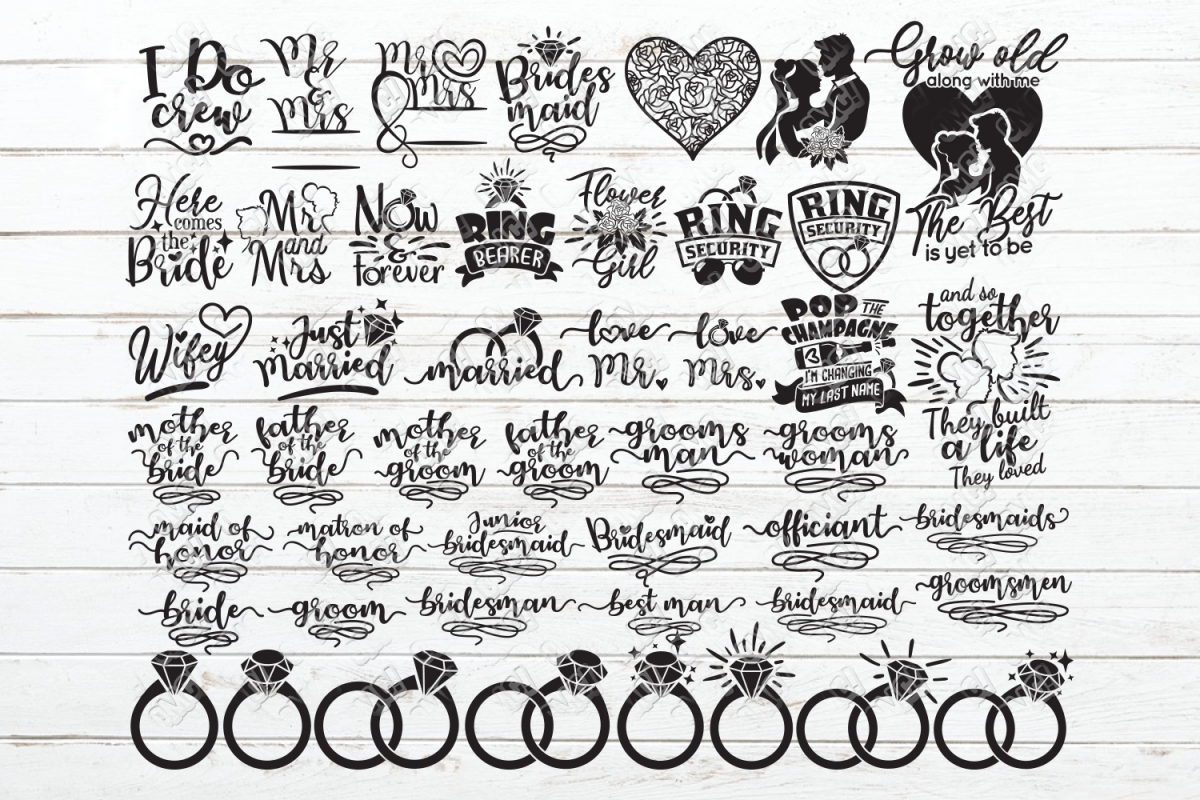 I Do
crew
Mr
&
Mrs
Mr
&
Mrs
Brides
maid
Grow old
along with me
The Best
is yet to be
Here
comes
the
Bride
Mr
and
Mrs
Now
&
Forever
RING
BEARER
Flower
Girl
RING
SECURITY
RING
SECURITY
Wifey
Just
Married
married
love
Mr.
love
Mrs.
POP THE
CHAMPAGNE
I'M CHANGING
MY LAST NAME
and so
together
They built
a life
They loved
mother
of the
bride
father
of the
bride
mother
of the
groom
father
of the
groom
grooms
man
grooms
woman
maid of
honor
matron of
honor
Junior
bridesmaid
Bridesmaid
officiant
bridesmaids
bride
groom
bridesman
best man
bridesmaid
groomsmen